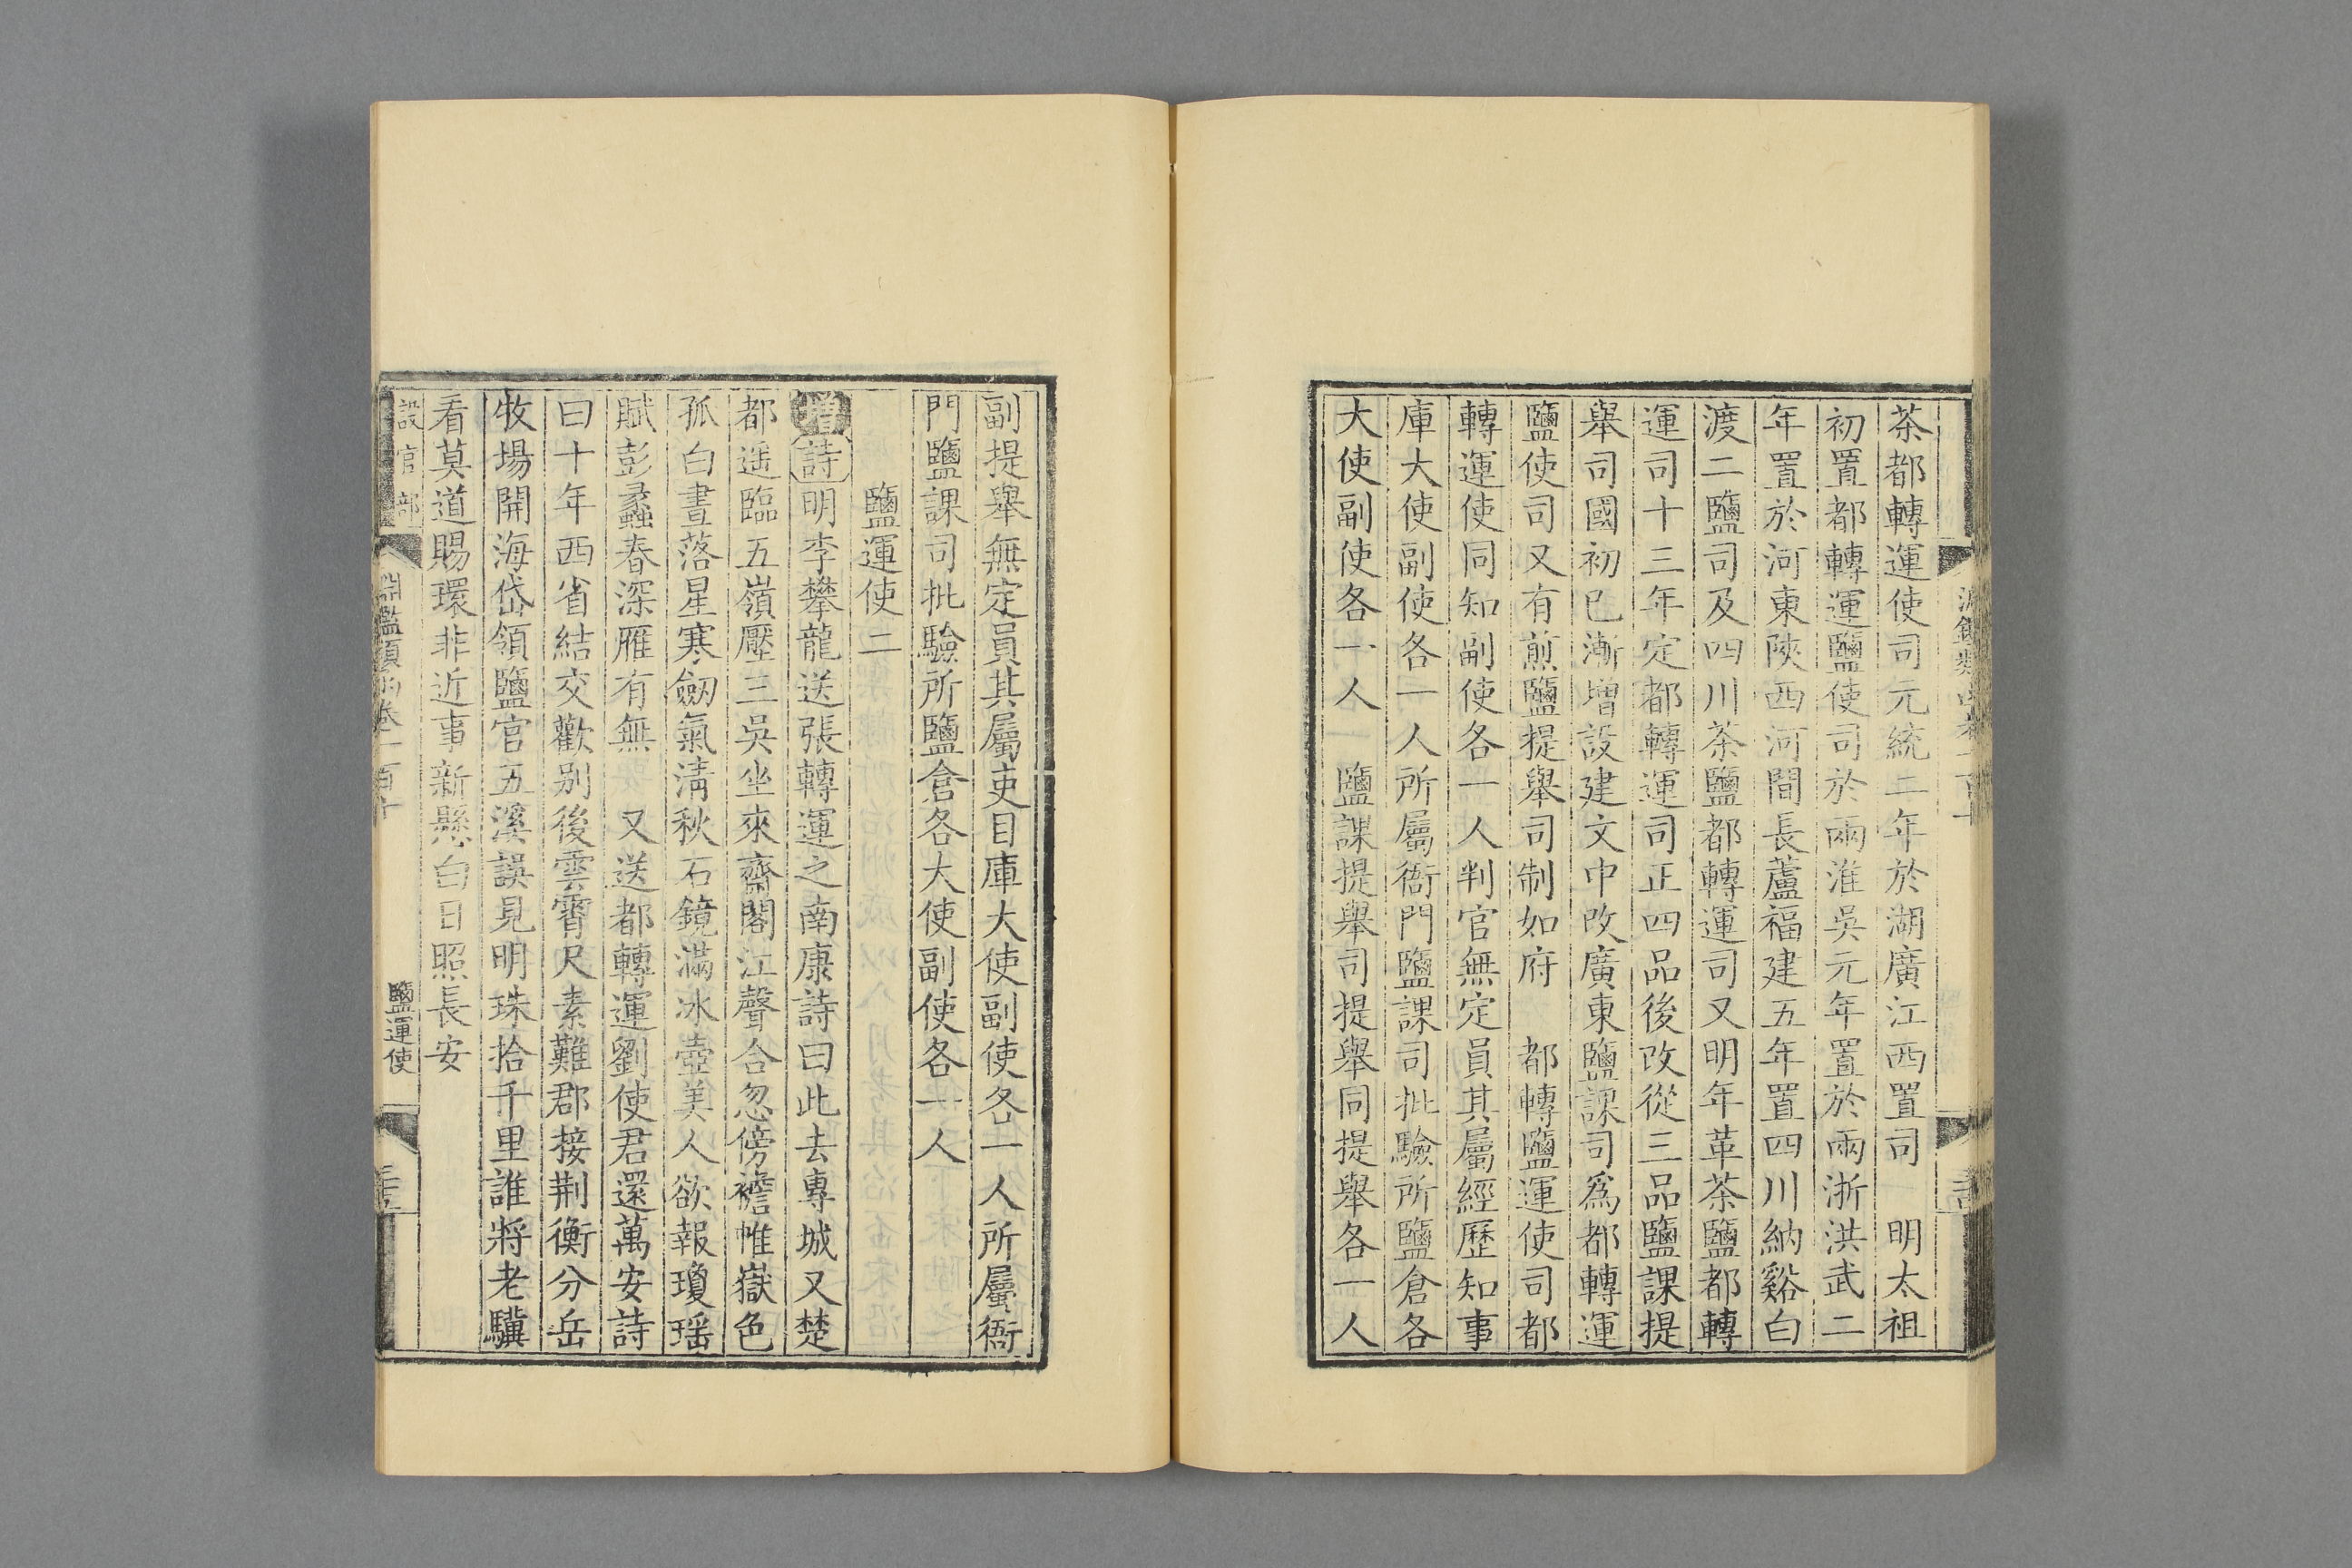 茶都轉運使司元統二年於湖廣江西置司　明太祖
初置都轉運鹽使司於兩淮吳元年置於兩浙洪武二
年置於河東陝西河間長蘆福建五年置四川納谿白
渡二鹽司及四川茶鹽都轉運司又明年革茶鹽都轉
運司十三年定都轉運司正四品後改從三品鹽課提
舉司國初已漸增設建文中改廣東鹽課司爲都轉運
鹽使司又有煎鹽提舉司制如府　都轉鹽運使司都
轉運使同知副使各一人判官無定員其屬經歷知事
庫大使副使各一人所屬衙門鹽課司批驗所鹽倉各
大使副使各一人　鹽課提舉司提舉同提舉各一人
副提舉無定員其屬吏目庫大使副使各一人所屬衙
門鹽課司批驗所鹽倉各大使副使各一人
鹽運使二
增詩明李攀龍送張轉運之南康詩曰此去專城又楚
都遥臨五嶺壓三吳坐來齋閣江聲合忽傍襜帷嶽色
孤白晝落星寒劒氣清秋石鏡滿冰壺美人欲報瓊瑶
賦彭蠡春深雁有無　又送都轉運劉使君還萬安詩
曰十年西省結交歡别後雲霄尺素難郡接荆衡分岳
牧塲開海岱領鹽官五溪誤見明珠拾千里誰將老驥
看莫道賜環非近事新懸白日照長安
設官部
淵鑑類函卷一百十
鹽運使